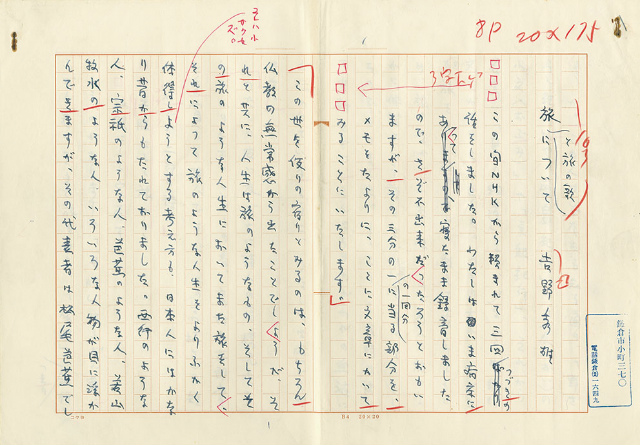 8P 20×175
旅と旅の歌
について
吉野秀雄
鎌倉市小町三七〇
電話鎌倉局一六四九
3字下ゲ
この宿NHKから頼まれて三回つづきの
をしました。わたしはいま病床に
あり 寝たまま録音しました
ので、さぞ不出来だつたろうとおもい
ますが、その三分の一に当る部分を、
の一回分
メモをたよりに、ここに文章にかいて
みることにいたします。
この世を仮りの宿りとみるのは、もちろん
仏教の無常感から出たことでしようが、そ
れと共に、人生は旅のようなもの、そしてそ
の旅のような人生においてまた旅をして、
それによつて旅のような人生をよりふかく
体得しようとする考え方も、日本人にはかな
り昔からもたれておりました。西行のような
人、宗祇のような人、芭蕉のような人、
牧水のような人、いろいろな人物が目に浮か
んできますが、その代表者は松尾芭蕉でし
B4 20×20